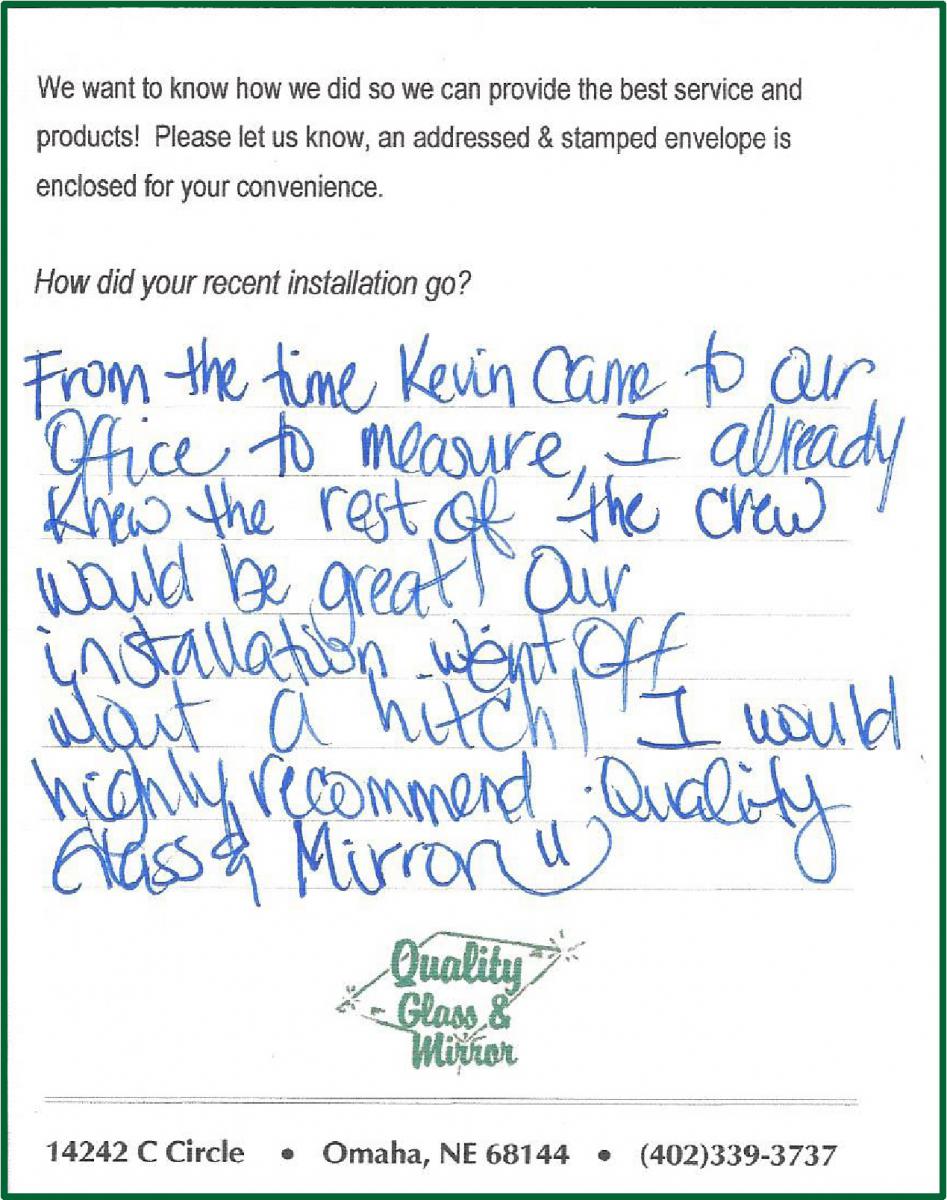 We want to know how we did so we can provide the best service and
products! Please let us know, an addressed & stamped envelope is
enclosed for your convenience.
How did your recent installation go?
From the time Kevin Came to our
Office to measure, I already
knew the rest of the crew
would be great! Our
installation went off
w/out a hitch! I would
highly recommend Quality
Glass & Mirror
Quality
Glass &
Mirror
14242 C Circle • Omaha, NE 68144 • (402)339-3737